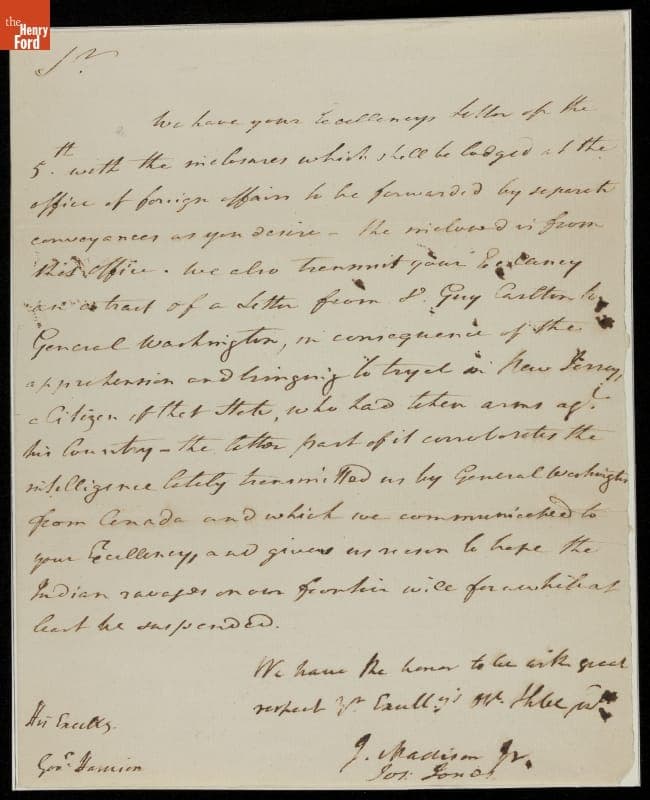 the
Henry
Ford
Sr
We have your Excellencys Letter of the
5.th with the inclosures which shall be lodged at the
office of foreign affairs to be forwarded by separate
conveyances as you desire - the inclosed is from
this office. We also transmit your Excelancy
an extract of a Letter from Sr. Guy Carlton to
General Washington, in consequence of the
apprehension and bringing to tryal in New Jersey,
a Citizen of that State, who had taken arms agt.
his Country - the latter part of it corroborates the
intelligence lately transmitted us by General Washington
from Canada and which we communicated to
your Excellency, and gives us reason to hope the
Indian ravages on our frontier will for a while at
least be suspended.
We have the honor to be with great
respect yr. Excellys
His Excelly.
Govr. Harrison
J. Madison Jr.
Jos: Jones